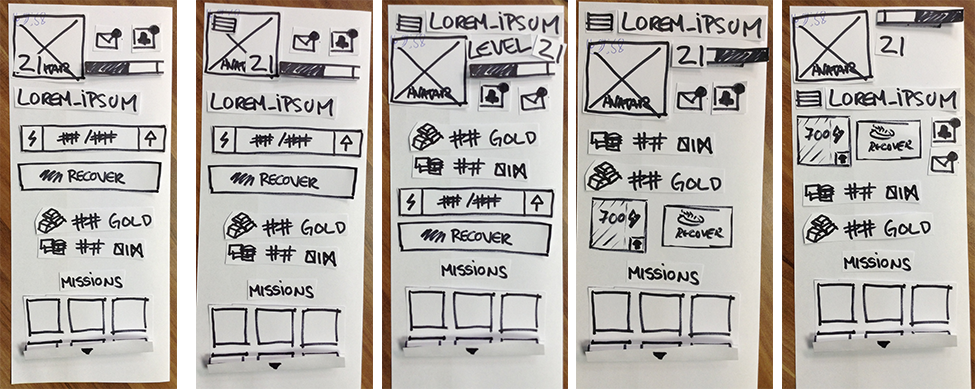 21
LOREM_IPSUM
##/###
RECOVER
## GOLD
##
MISSIONS
21
LOREM_IPSUM
##/###
RECOVER
## GOLD
##
MISSIONS
LOREM_IPSUM
LEVEL 21
AVATAR
## GOLD
##
##/###
RECOVER
MISSIONS
LOREM_IPSUM
21
AVATAR
##
## GOLD
700
RECOVER
MISSIONS
21
LOREM_IPSUM
700
RECOVER
##
## GOLD
MISSIONS